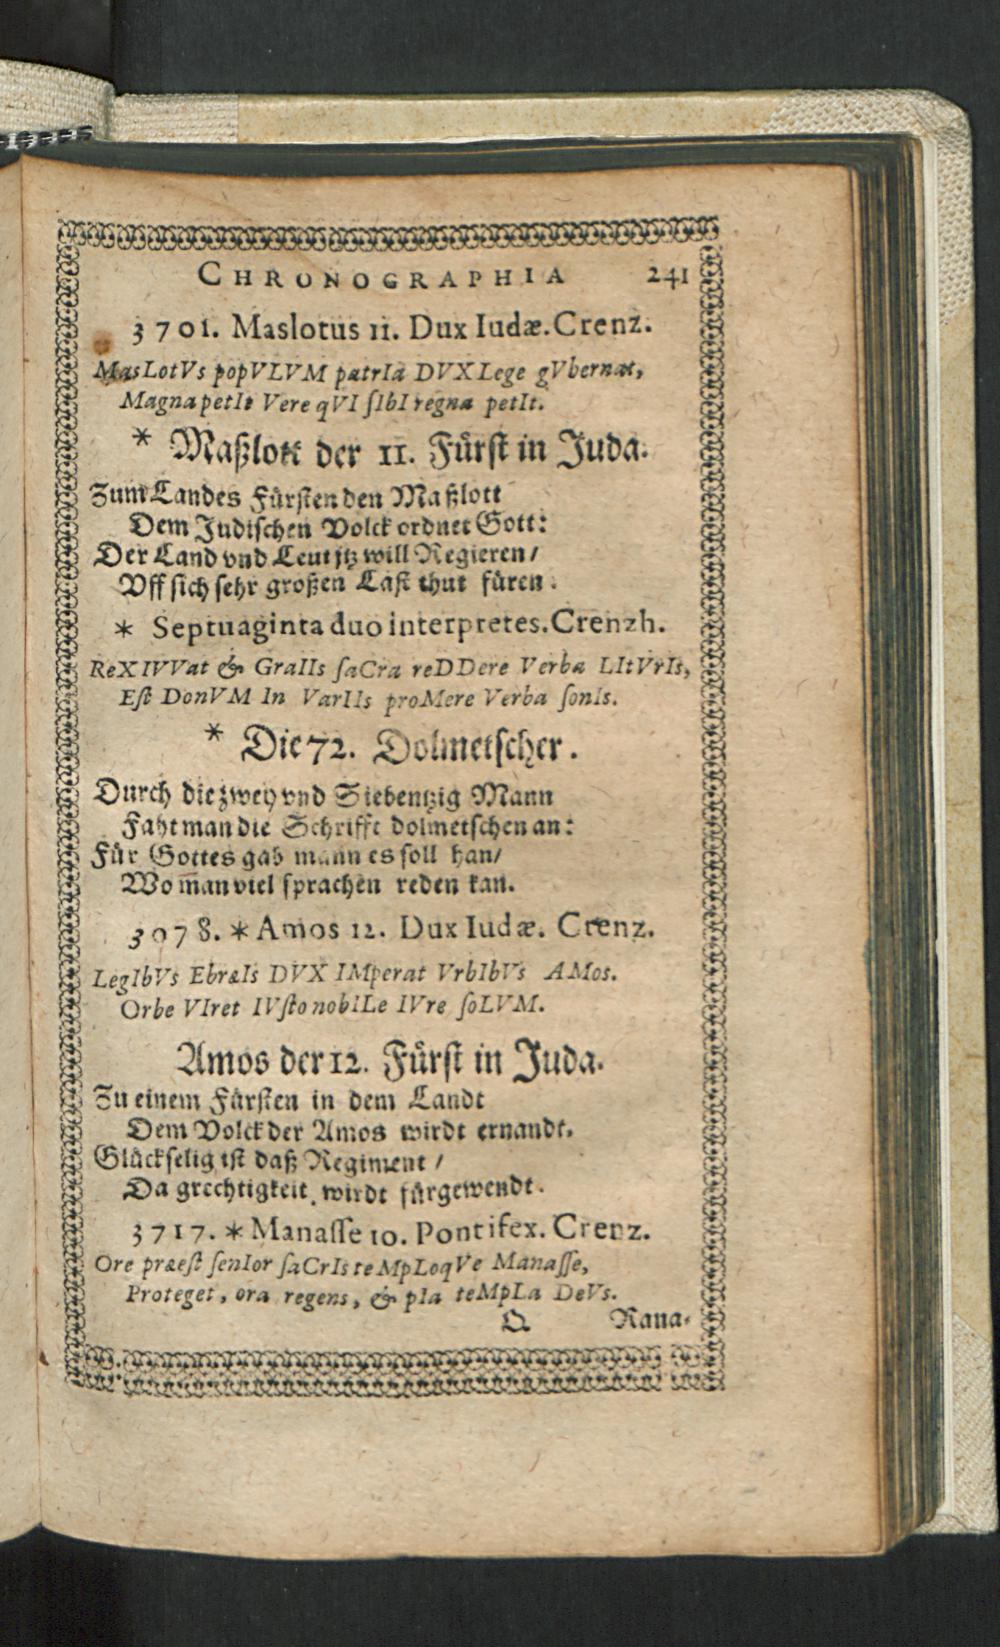 CHRONOGRAPHIA 241
3701. Maslotus 11. Dux Iudæ. Crenz.
MasLotVs popVLVM patrIa DVX Lege gVbernat,
Magna petIt Vere qVI ſIbI regna petIt.
* Maßlott der 11. Fürſt in Juda.
Zum Landes Fürſten den Maßlott
Dem Judiſchen Volck ordnet Gott:
Der Land vnd Leut itz will Regieren/
Vff ſich ſehr großen Laſt thut füren.
* Septuaginta duo interpretes. Crenzh.
ReX IVVat & GraIIs ſaCra reDDere Verba LItVrIs,
Eſt DonVM In VarIIs proMere Verba ſonIs.
* Die 72. Dolmetſcher.
Durch die zwey vnd Siebentzig Mann
Faht man die Schrifft dolmetſchen an:
Für Gottes gab mann es ſoll han/
Wo m̄an viel ſprachen reden kan.
3078. * Amos 12. Dux Iudæ. Crenz.
LegIbVs EbræIs DVX IMperat VrbIbVs AMos.
Orbe VIret IVſto nobILe IVre ſoLVM.
Amos der 12. Fürſt in Juda.
Zu einem Fürſten in dem Landt
Dem Volck der Amos wirdt ernandt.
Glückſelig iſt daß Regiment /
Da grechtigkeit wirdt fürgewendt.
3717. * Manaſſe 10. Pontifex. Crenz.
Ore præeſt ſenIor ſaCrIs teMpLoqVe Manaſſe,
Proteget, ora regens, & pIa teMpLa DeVs.
Q Rana-